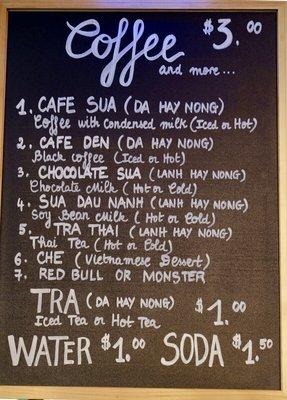 Coffee $3.00
and more...
1. CAFE SUA (DA HAY NONG)
Coffee with condensed milk (Iced or Hot)
2. CAFE DEN (DA HAY NONG)
Black coffee (Iced or Hot)
3. CHOCOLATE SUA (LANH HAY NONG)
Chocolate Milk (Hot or Cold)
4. SUA DAU NANH (LANH HAY NONG)
Soy Bean Milk (Hot or Cold)
5. TRA THAI (LANH HAY NONG)
Thai Tea (Hot or Cold)
6. CHE (Vietnamese Dessert)
7. RED BULL OR MONSTER
TRA (DA HAY NONG) $1.00
Iced Tea or Hot Tea
WATER $1.00 SODA $1.50